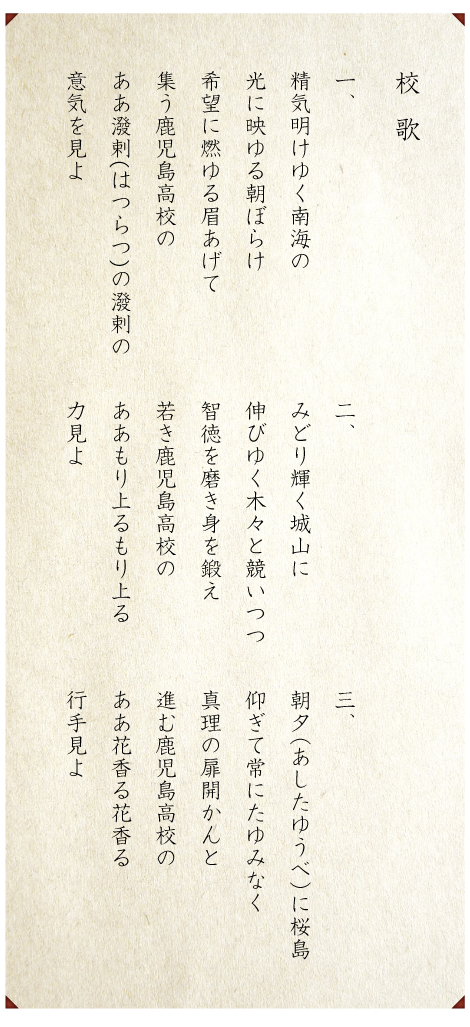 校歌
一、
精気明けゆく南海の
光に映ゆる朝ぼらけ
希望に燃ゆる眉あげて
集う鹿児島高校の
ああ潑剌(はつらつ)の潑剌の
意気を見よ
二、
みどり輝く城山に
伸びゆく木々と競いつつ
智徳を磨き身を鍛え
若き鹿児島高校の
ああもり上るもり上る
力見よ
三、
朝夕(あしたゆうべ)に桜島
仰ぎて常にたゆみなく
真理の扉開かんと
進む鹿児島高校の
ああ花香る花香る
行手見よ